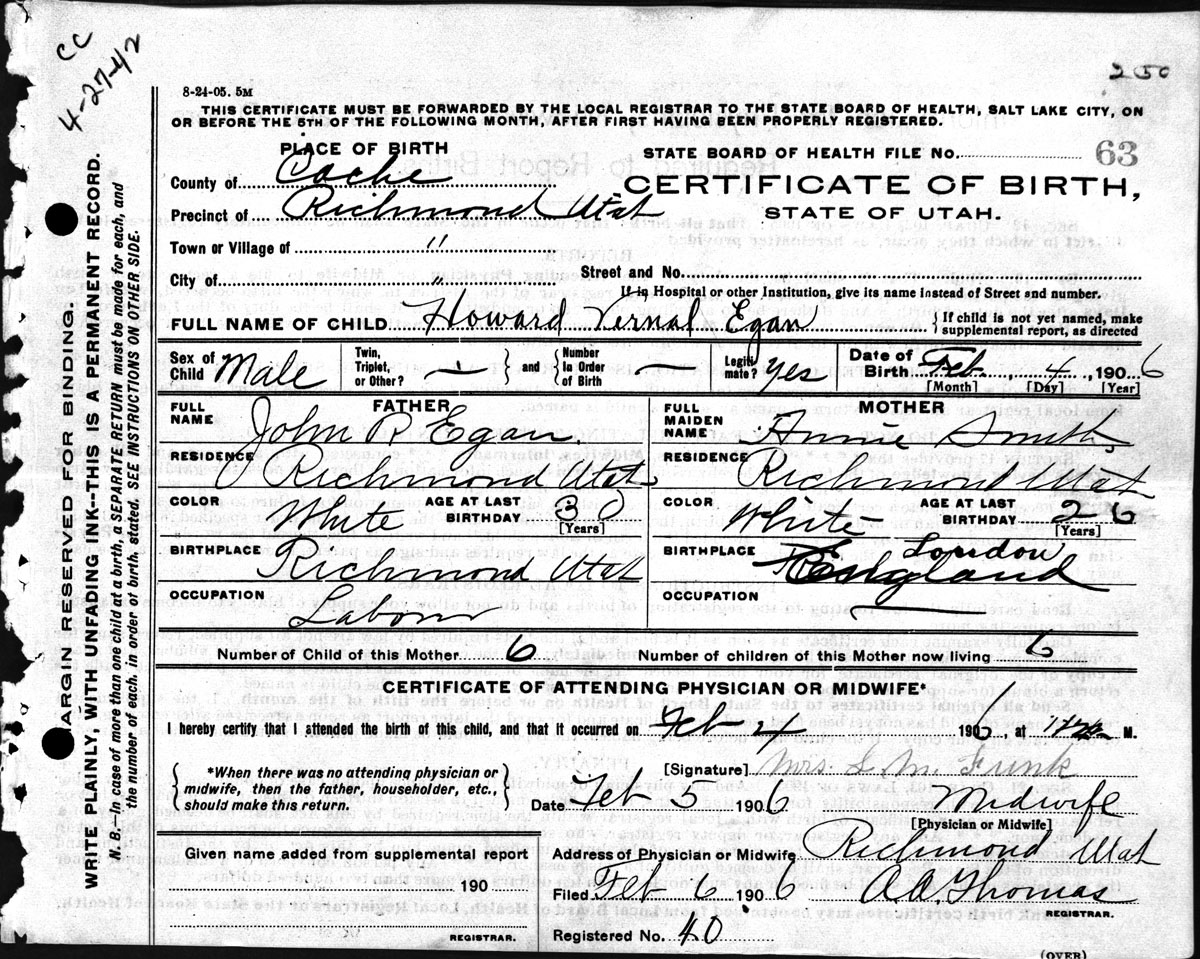 CC
4-27-42
250
8-24-05. 5M
THIS CERTIFICATE MUST BE FORWARDED BY THE LOCAL REGISTRAR TO THE STATE BOARD OF HEALTH, SALT LAKE CITY, ON
OR BEFORE THE 5TH OF THE FOLLOWING MONTH, AFTER FIRST HAVING BEEN PROPERLY REGISTERED.
PLACE OF BIRTH
STATE BOARD OF HEALTH FILE No. 63
County of Cache
CERTIFICATE OF BIRTH,
Precinct of Richmond Utah
STATE OF UTAH.
Town or Village of "
City of "
Street and No.
If in Hospital or other Institution, give its name instead of Street and number.
FULL NAME OF CHILD Howard Vernal Egan { If child is not yet named, make
supplemental report, as directed
Sex of Child Male Twin, Triplet, or Other? - } and { Number In Order of Birth - Legitimate? yes Date of Birth Feb 4, 1906
[Month] [Day] [Year]
FATHER
MOTHER
FULL NAME John R Egan.
FULL MAIDEN NAME Annie Smith
RESIDENCE Richmond Utah
RESIDENCE Richmond Utah
COLOR White AGE AT LAST BIRTHDAY 30 [Years]
COLOR White AGE AT LAST BIRTHDAY 26 [Years]
BIRTHPLACE Richmond Utah
BIRTHPLACE London England
OCCUPATION Labor
OCCUPATION
Number of Child of this Mother 6 Number of children of this Mother now living 6
CERTIFICATE OF ATTENDING PHYSICIAN OR MIDWIFE*
I hereby certify that I attended the birth of this child, and that it occurred on Feb 4 1906, at M.
{ *When there was no attending physician or
midwife, then the father, householder, etc.,
should make this return. }
[Signature] Mrs. S. M. Funk
Date Feb 5 1906 Midwife
[Physician or Midwife]
Given name added from supplemental report
190
REGISTRAR.
Address of Physician or Midwife Richmond Utah
Filed Feb 6 1906 A.A. Thomas
REGISTRAR.
Registered No. 40
(OVER)
MARGIN RESERVED FOR BINDING.
WRITE PLAINLY, WITH UNFADING INK--THIS IS A PERMANENT RECORD.
N. B.—In case of more than one child at a birth, a SEPARATE RETURN must be made for each, and
the number of each, in order of birth, stated. SEE INSTRUCTIONS ON OTHER SIDE.